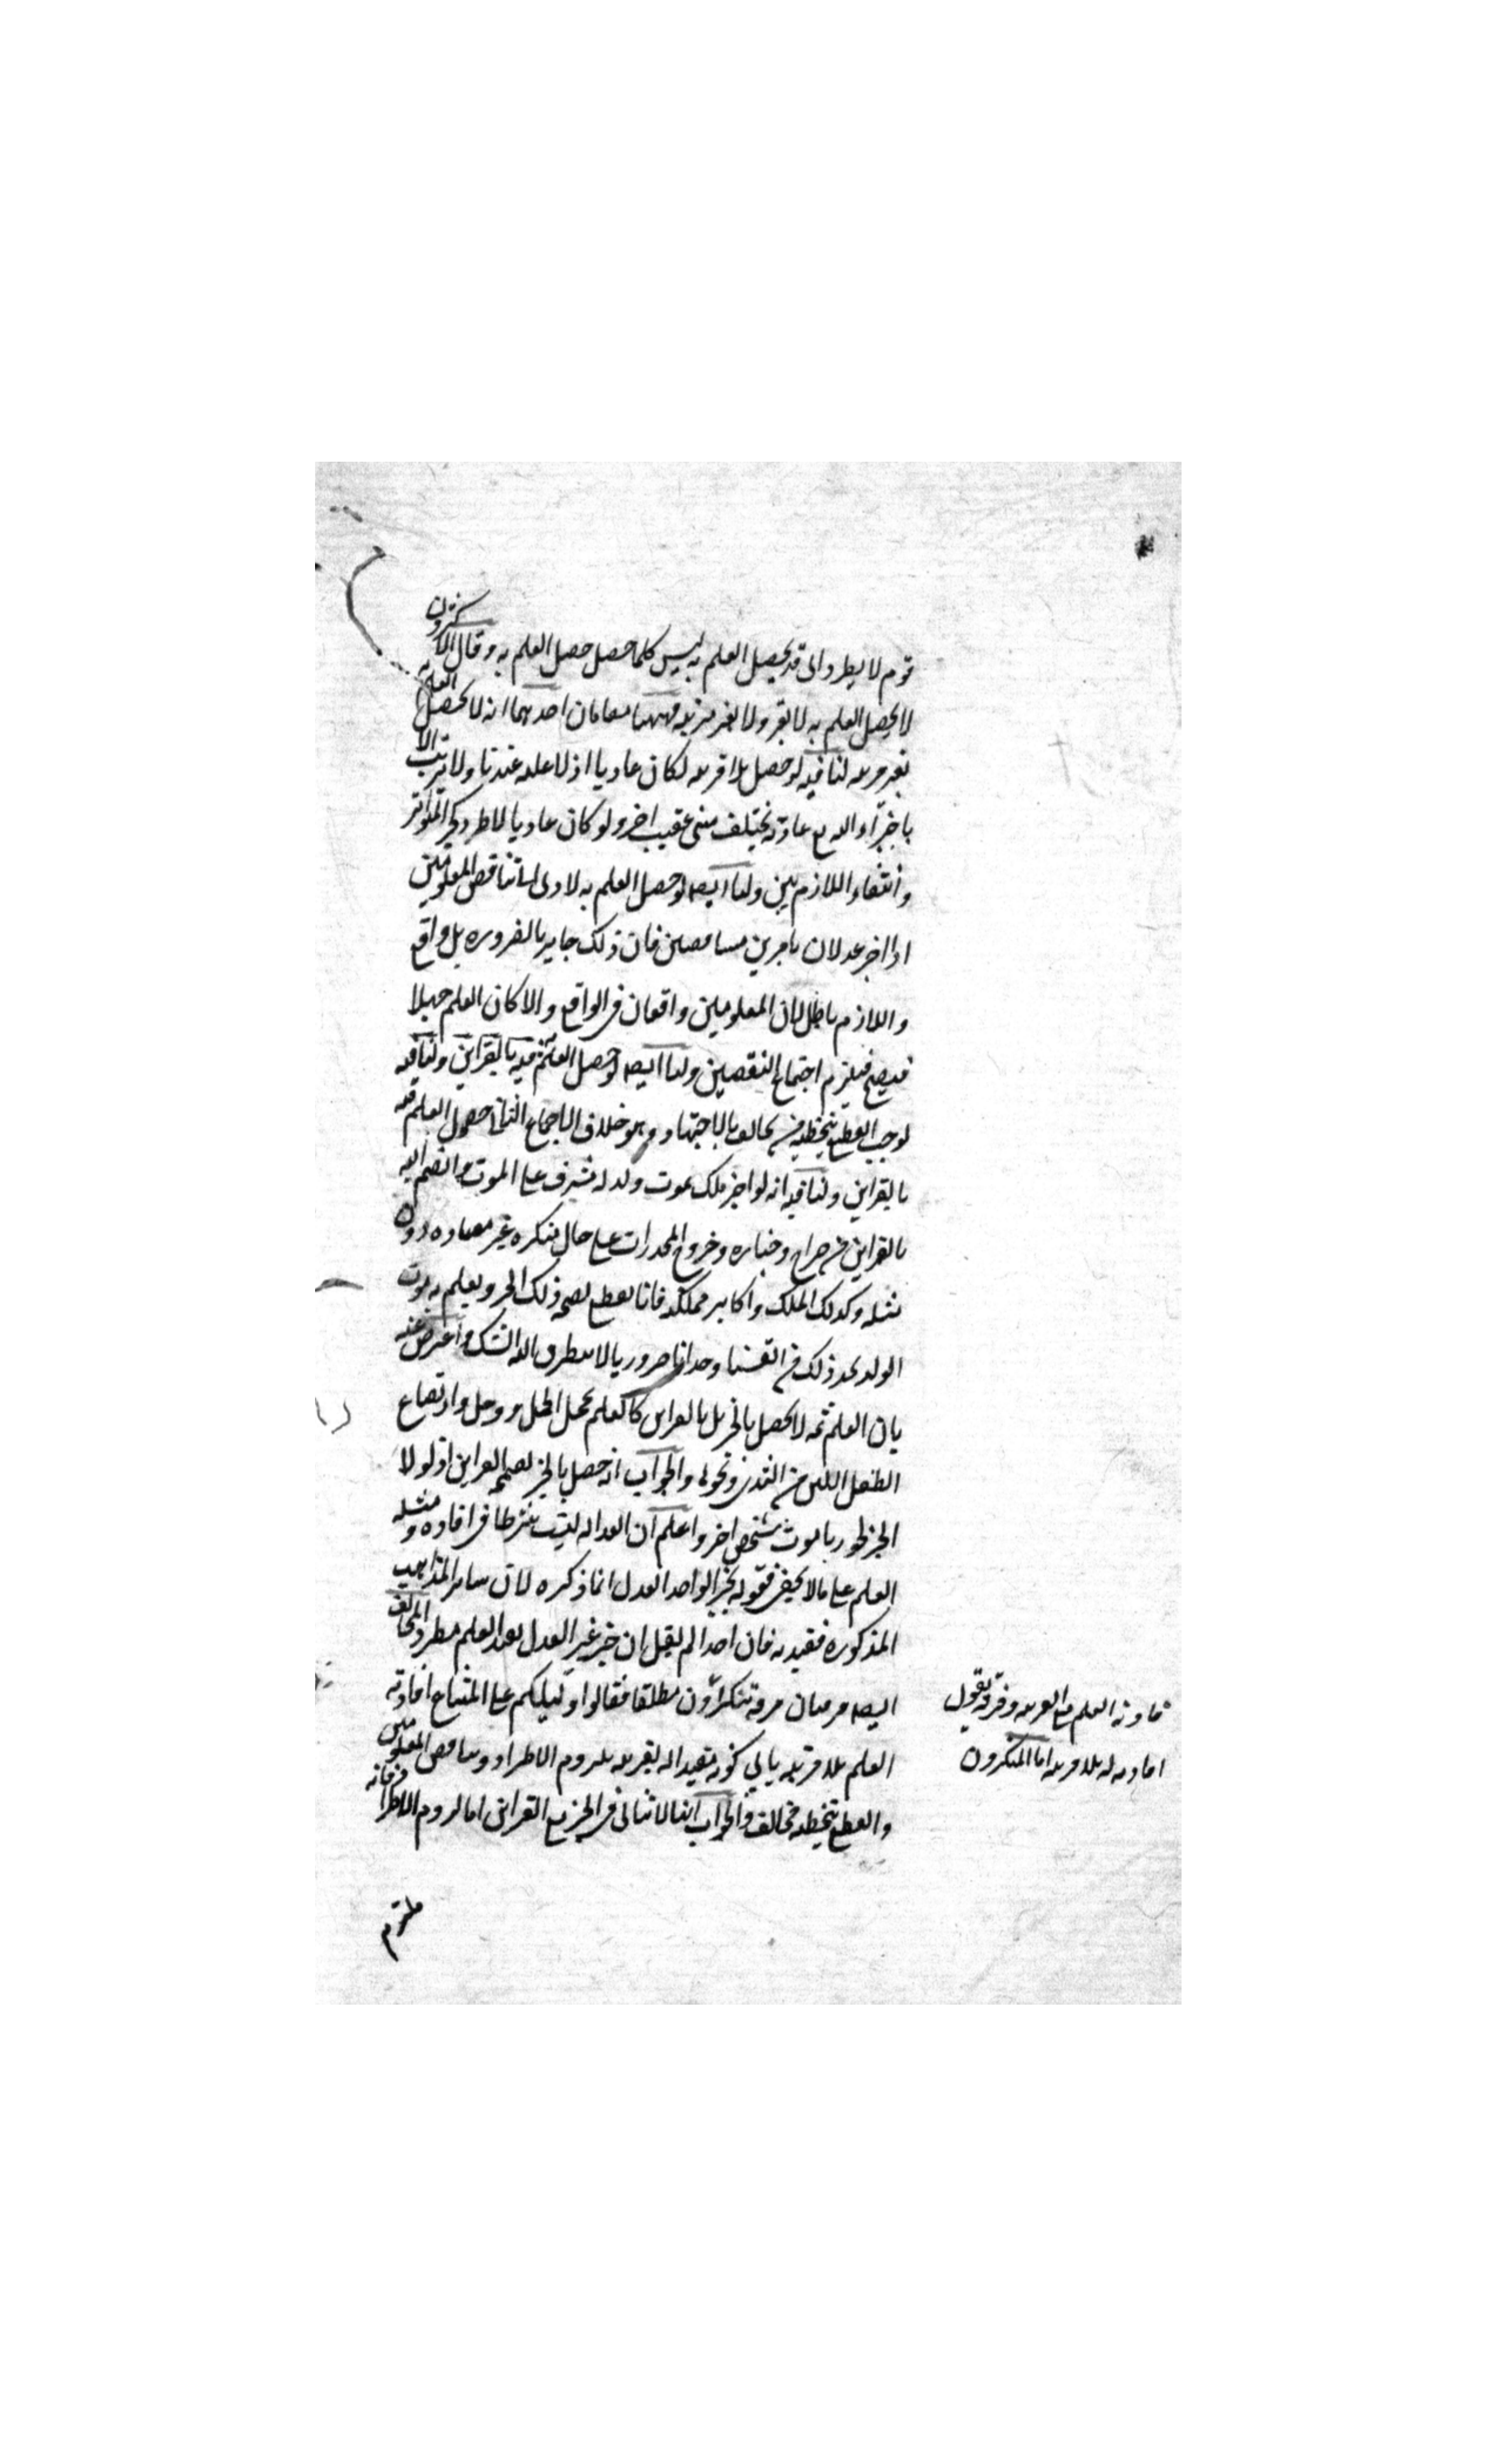 قوم لا يطرد اى قد يحصل العلم به ليس كلما حصل حصل العلم به و قال الاكثرون
لا يحصل العلم به لا بقرينة ولا بغير قرينة فههنا مقامان احدهما انه لا يحصل العلم به
بغير قرينة لنا فيه لو حصل بلا قرينة لكان عاديا اذ لا علية عندنا ولا ترتب الا
باجراء الله مع عادته بخلق شىء عقيب اخر ولو كان عاديا لاطرد كخبر المتواتر
وانتفاء اللازم بين ولنا ايضا لو حصل العلم به لادى الى تناقض المعلومين
اذا اخبر عدلان بامرين متناقضين فان ذلك جايز بالضرورة بل واقع
واللازم باطل لان المعلومين واقعان فى الواقع والا كان العلم جهلا
فيلزم اجتماع النقيضين ولنا ايضا لو حصل العلم
لوجب القطع بتخطئة من يخالفه بالاجتهاد وهو خلاف الاجماع الثانى حصول العلم فيه
بالقراين ولنا فيه انه لو اخبر ملك بموت ولد له مشرف على الموت وانضم اليه
القراين من صراخ وجنازة وخروج المخدرات على حال منكرة غير معتادة دون
مثله وكذلك الملك واكابر مملكته فانا نقطع بصحة ذلك الخبر ونعلم به موت
الولد نجد ذلك من انفسنا وجدانا ضروريا لا يتطرق اليه الشك واعترض عنه
بان العلم ثمه لا يحصل بالخبر بل بالقراين كالعلم بخجل الخجل ووجل وارتضاع
الطفل اللبن من الثدى ونحوها والجواب انه حصل بالخبر بضميمة القراين اذ لولا
الخبر لجوزنا موت شخص اخر واعلم ان العدالة ليست شرطا فى افادة مثله
العلم على ما لا يخفى فقوله بخبر الواحد العدل انما ذكره لان ساير المذاهب
المذكورة مقيد به فان احدا لم يقل ان خبر غير العدل يفيد العلم مطرد المخالف
ايضا فرقتان فرقة ينكرون مطلقا فقالوا دليلكم على امتناع افادته
العلم بلا قرينة يأبى كونه مقيدا له بقرينة بلزوم الاطراد وتناقض المعلومين
والقطع بتخطئة مخالفه والجواب انها لا تتأتى فى الخبر مع القراين اما لزوم الاطراد فانه
ملتزم
فادته العلم مع القرينة وفرقة يقول
افادته له بلا قرينة اما المنكرون